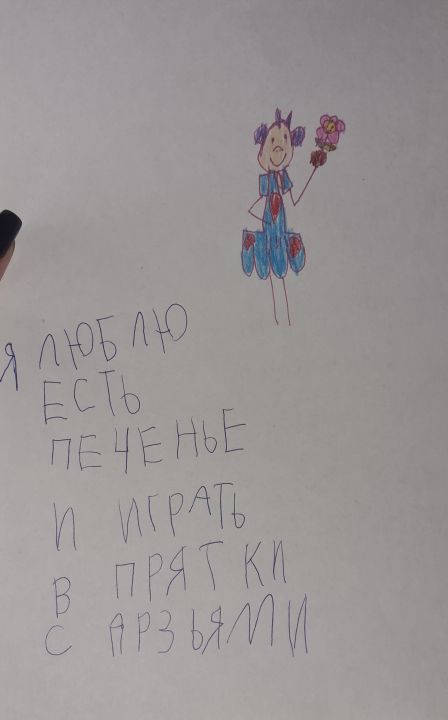 Я ЛЮБЛЮ
ЕСТЬ
ПЕЧЕНЬЕ
И ИГРАТЬ
В ПРЯТКИ
С ДРЗЬЯМИ